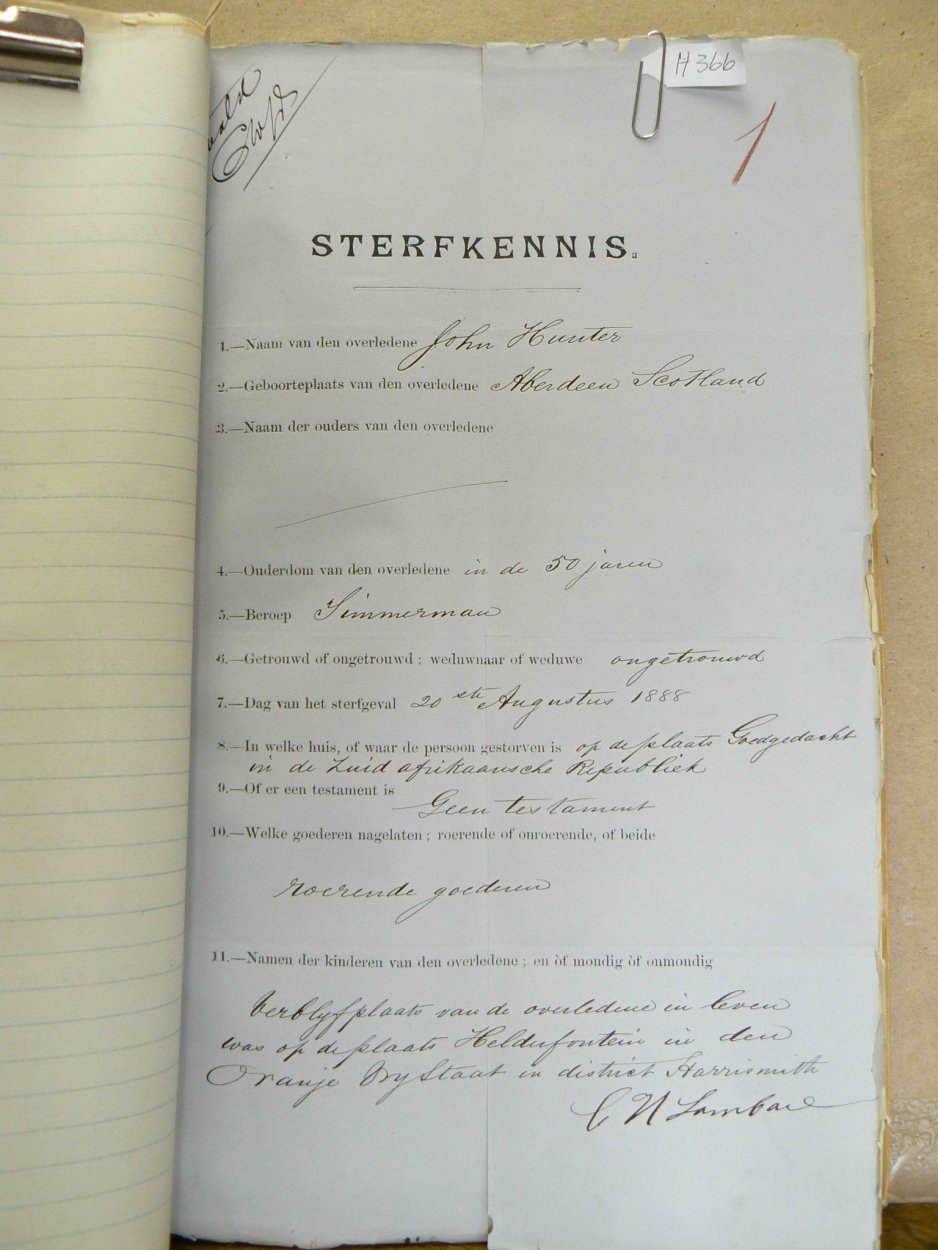 H 366
1
STERFKENNIS.
1.—Naam van den overledene John Hunter
2.—Geboorteplaats van den overledene Aberdeen Scotland
3.—Naam der ouders van den overledene
4.—Ouderdom van den overledene in de 50 jaren
5.—Beroep Timmerman
6.—Getrouwd of ongetrouwd; weduwnaar of weduwe ongetrouwd
7.—Dag van het sterfgeval 20ste Augustus 1888
8.—In welke huis, of waar de persoon gestorven is op de plaats Goedgedacht
in de Zuid afrikaansche Republiek
9.—Of er een testament is
Geen testament
10.—Welke goederen nagelaten; roerende of onroerende, of beide
roerende goederen
11.—Namen der kinderen van den overledene; en òf mondig òf onmondig
Verblyfplaats van de overledene in leven
was op de plaats Helderfontein in den
Oranje Vry Staat in district Harrismith
C N Lombard